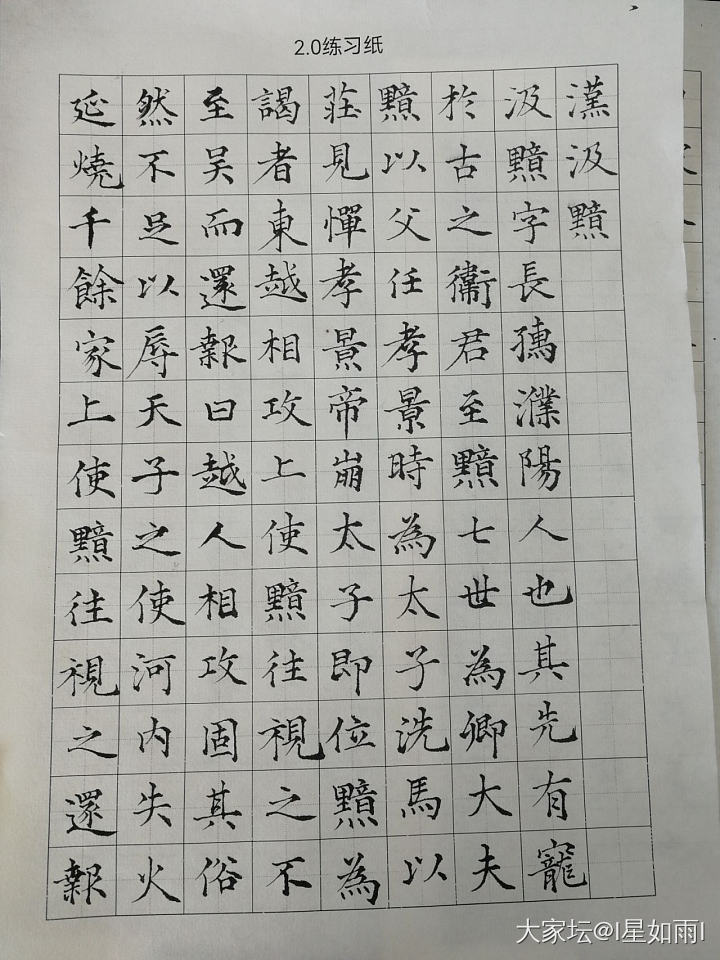 2.0练习纸
漢汲黯
汲黯字長孺濮陽人也其先有寵
於古之衛君至黯七世為卿大夫
黯以父任孝景時為太子洗馬以
莊見憚孝景帝崩太子即位黯為
謁者東越相攻上使黯往視之不
至吳而還報曰越人相攻固其俗
然不足以辱天子之使河內失火
延燒千餘家上使黯往視之還報
大家坛@l星如雨l